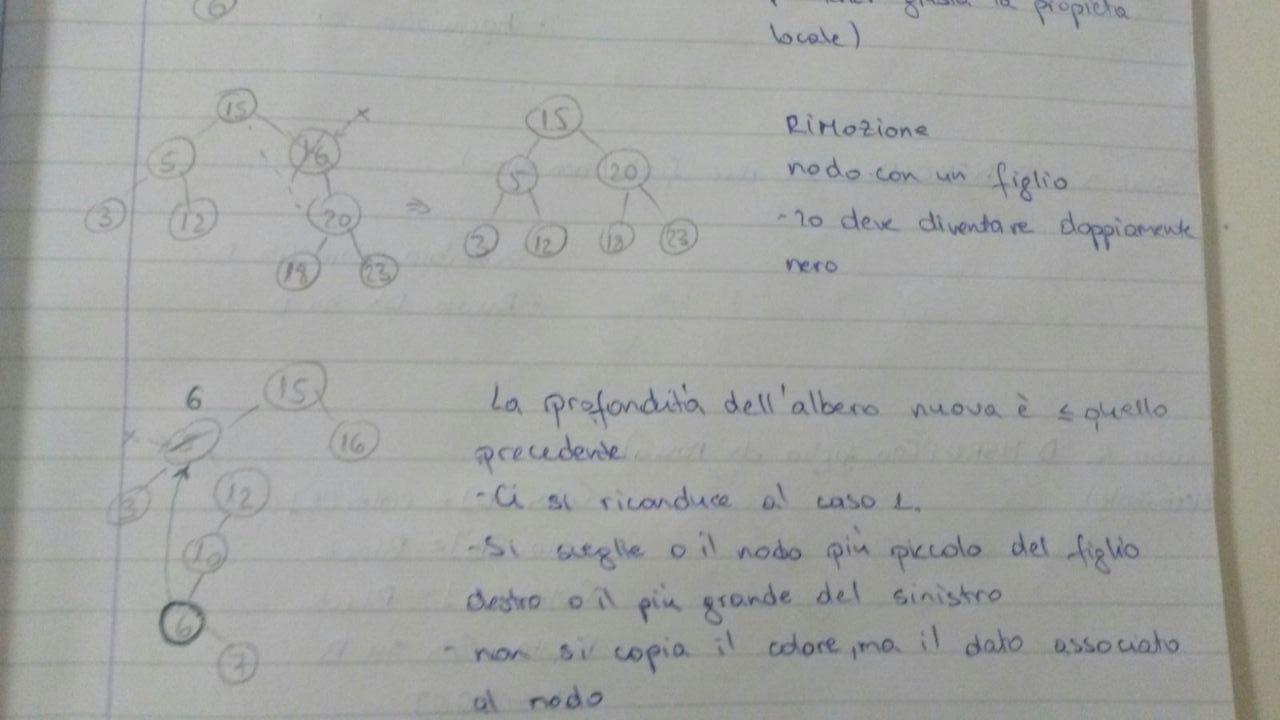 6
giusta la propietà
locale)
15
16
x
5
20
3
12
18
23
⇒
15
5
20
3
12
18
23
Rimozione
nodo con un figlio
-20 deve diventare doppiamente
nero
6
15
16
x
3
12
10
6
7
La profondità dell'albero nuova è ≤ quello
precedente
-Ci si riconduce al caso 1.
-Si sceglie o il nodo più piccolo del figlio
destro o il più grande del sinistro
- non si copia il colore, ma il dato associato
al nodo